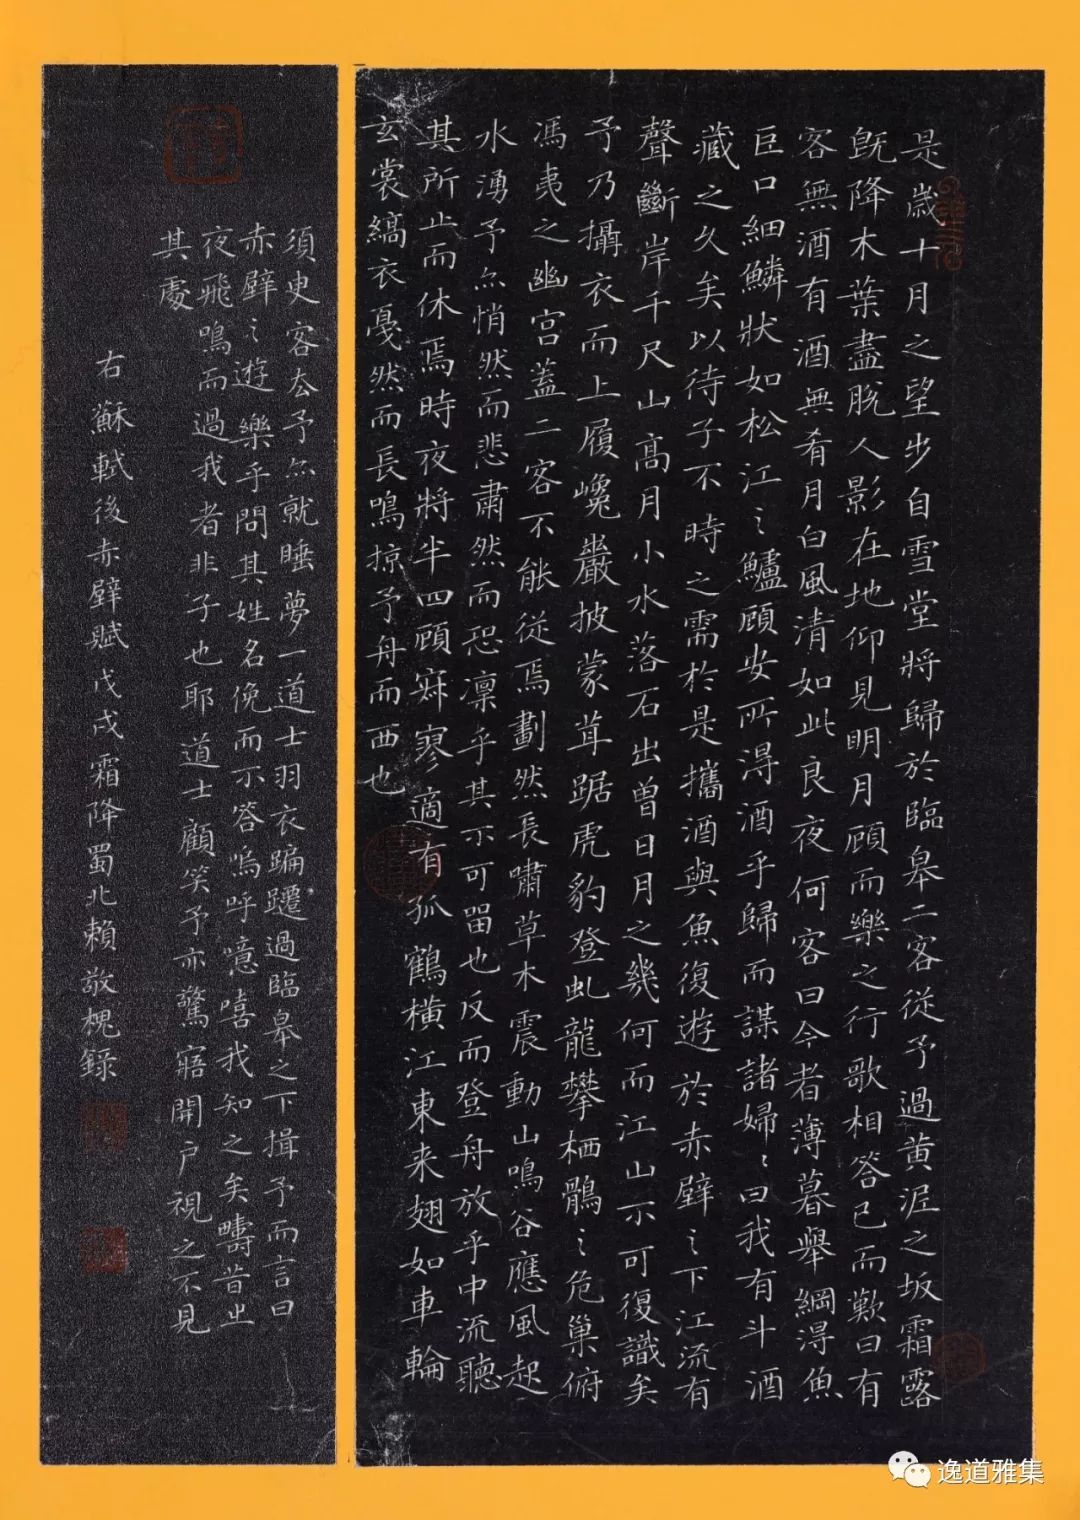 是歲十月之望步自雪堂將歸於臨皋二客從予過黄泥之坂霜露
既降木葉盡脫人影在地仰見明月顧而樂之行歌相答已而歎曰有
客無酒有酒無肴月白風清如此良夜何客曰今者薄暮舉網得魚
巨口細鱗狀如松江〻鱸顧安所得酒乎歸而謀諸婦〻曰我有斗酒
藏之久矣以待子不時之需於是攜酒與魚復遊於赤壁〻下江流有
聲斷岸千尺山高月小水落石出曾日月之幾何而江山不可復識矣
予乃攝衣而上履巉巖披蒙茸踞虎豹登虬龍攀栖鶻〻危巢俯
馮夷之幽宫蓋二客不能從焉劃然長嘯草木震動山鳴谷應風起
水湧予尔悄然而悲肅然而恐凛乎其不可留也反而登舟放乎中流聽
其所止而休焉時夜將半四顧寂寥適有孤鶴橫江東来翅如車輪
玄裳縞衣戛然而長鳴掠予舟而西也
須臾客去予尔就睡夢一道士羽衣蹁躚過臨皋之下揖予而言曰
赤壁〻遊樂乎問其姓名俛而不答嗚呼噫嘻我知之矣疇昔之
夜飛鳴而過我者非子也耶道士顧笑予亦驚寤開户視之不見
其處
右蘇軾後赤壁賦戊戌霜降蜀北賴敬槐錄
逸道雅集